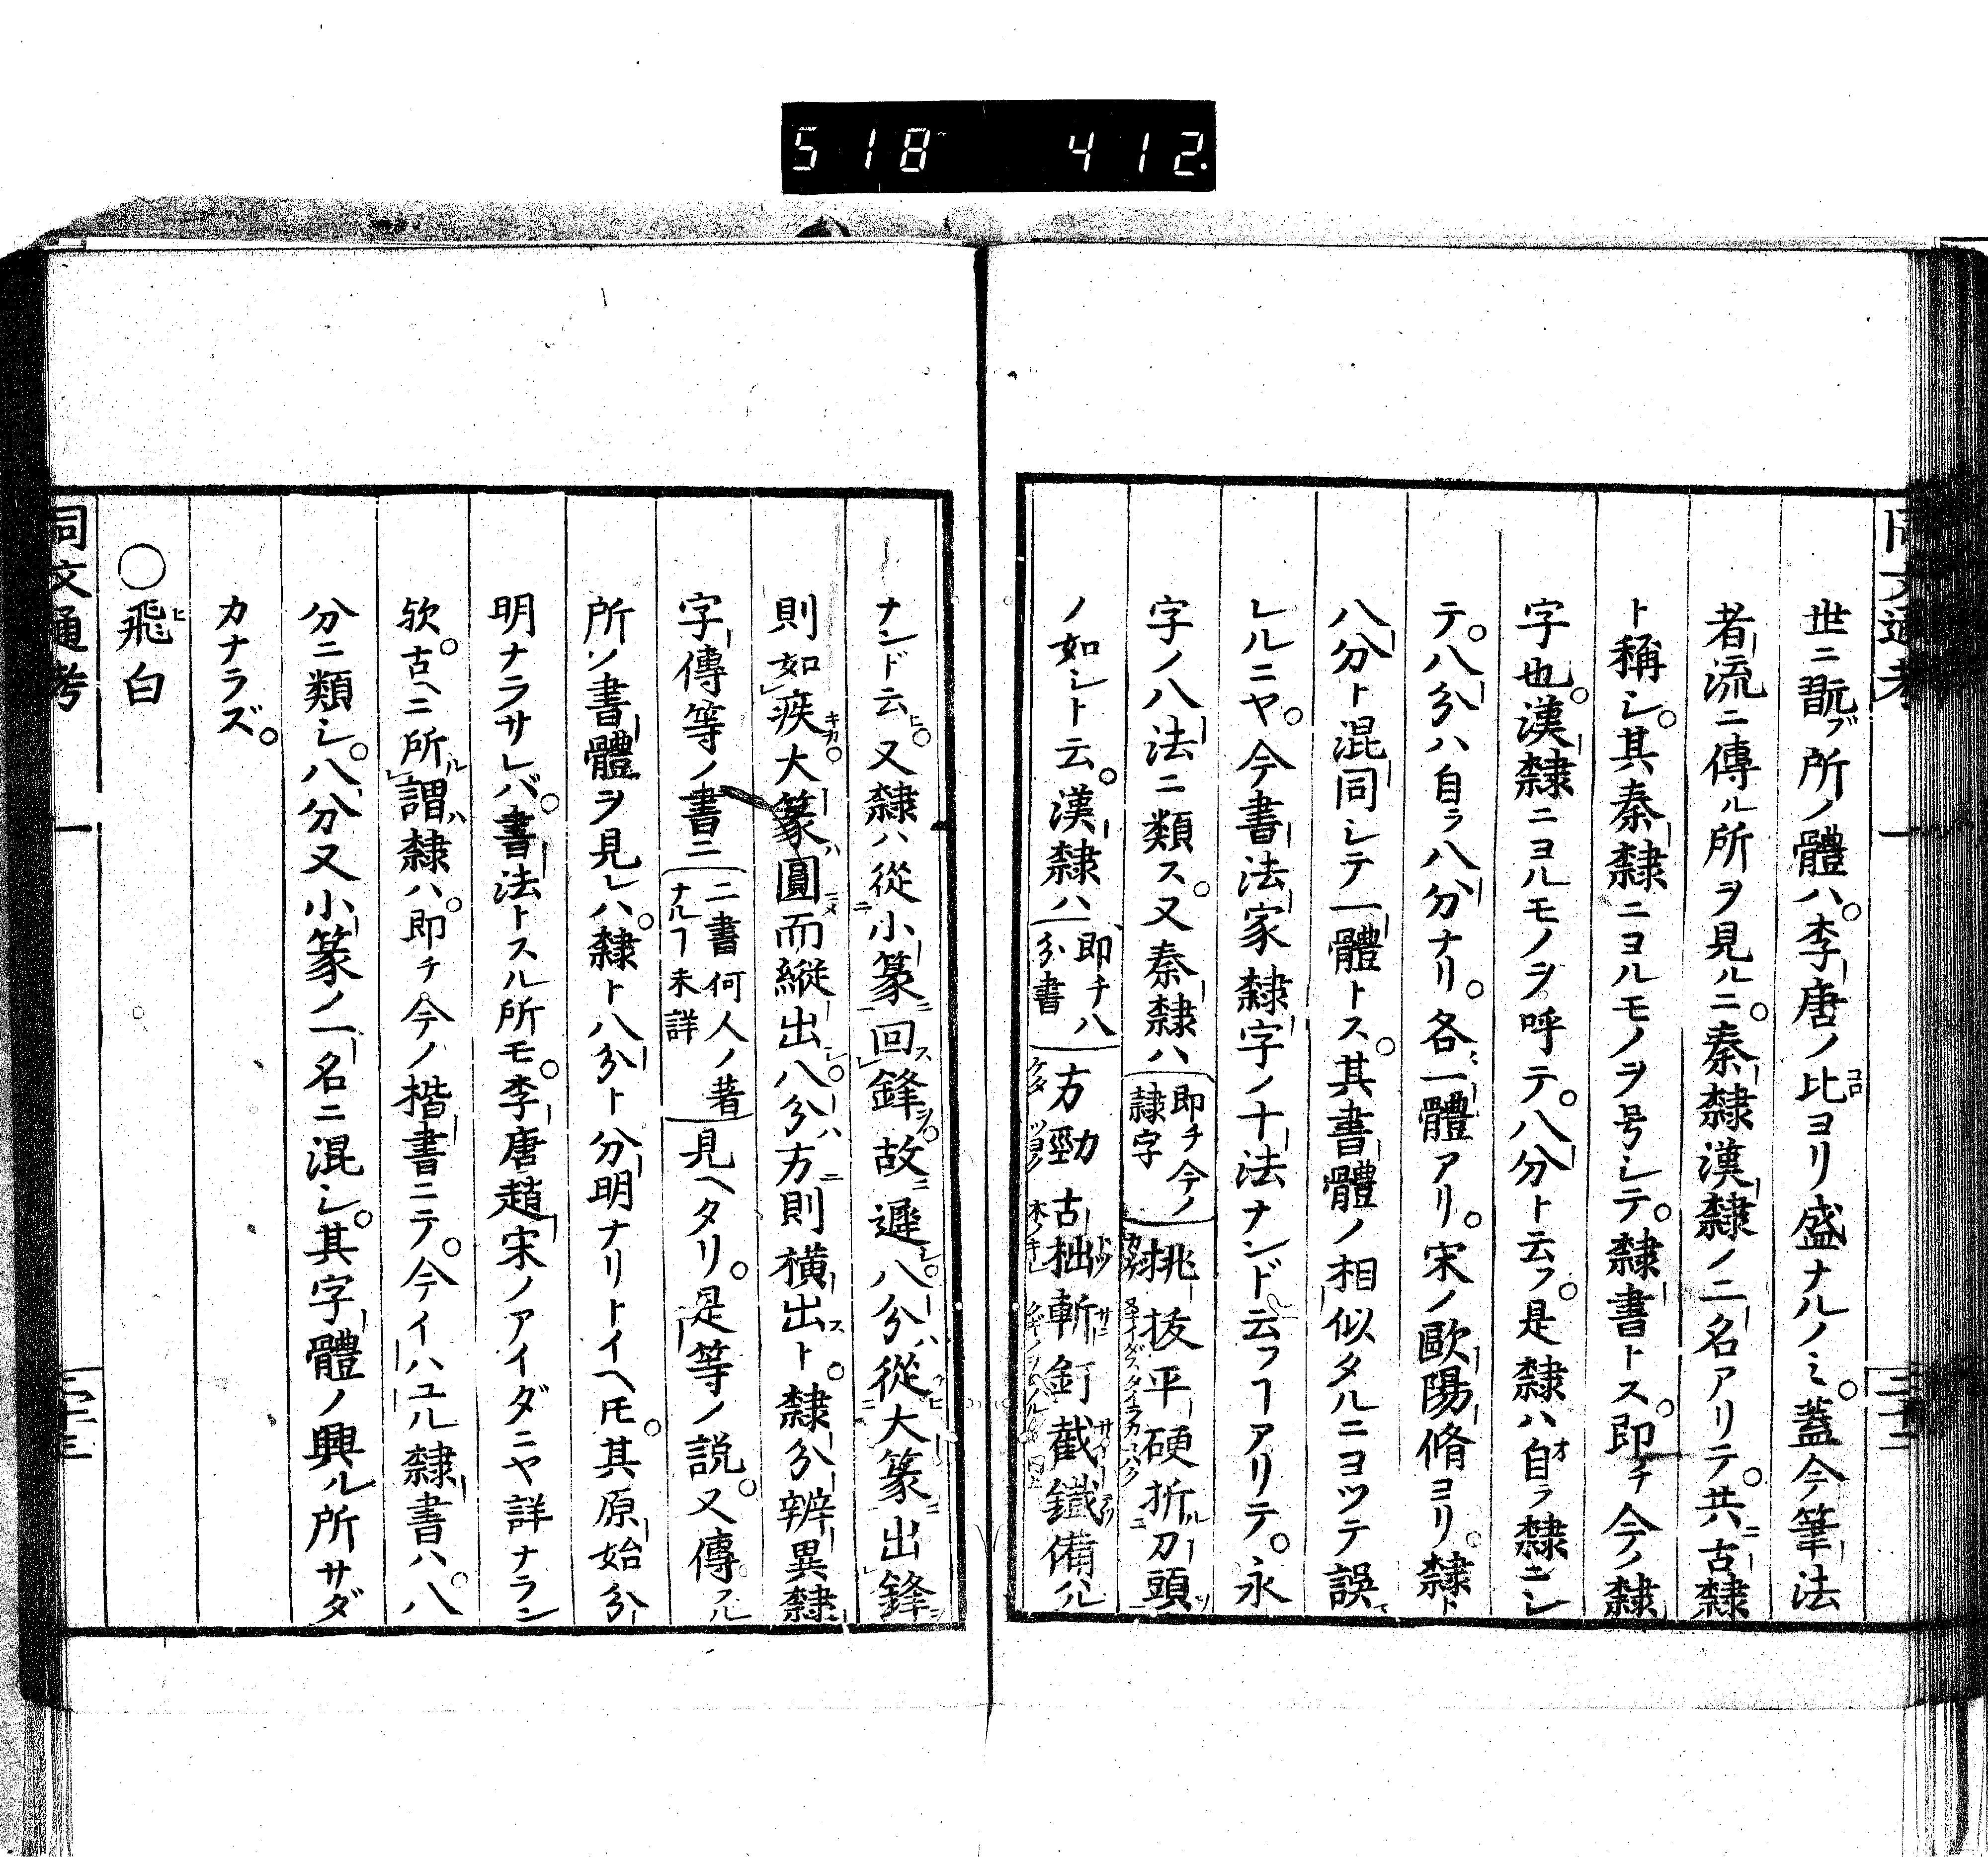 518 412.
同文通考 一
世ニ翫ブ所ノ體ハ。李唐ノ比ヨリ盛ナルノミ。蓋今筆法
者流ニ傳ル所ヲ見ルニ。秦隸漢隸ノ二名アリテ。共ニ古隸
ト稱シ。其秦隸ニヨルモノヲ号シテ。隸書トス。即チ今ノ隸
字也。漢隸ニヨルモノヲ呼テ。八分ト云フ。是隸ハ自ラ隸ニシ
テ。八分ハ自ラ八分ナリ。各一體アリ。宋ノ歐陽脩ヨリ。隸ト
八分ト混同シテ一體トス。其書體ノ相似タルニヨツテ誤
レルニヤ。今書法家隸字ノ十法ナンド云フヿアリテ。永
字ノ八法ニ類ス。又秦隸ハ即チ今ノ隸字挑拔平硬折刀頭
ノ如シト云。漢隸ハ即チ八分書方勁古拙斬釘截鐵備ル
ナンド云。又隸ハ從小篆回鋒故遲八分從大篆出鋒
則如疾大篆圓而縱出八分方則横出ト。隸分辨異隸
字傳等ノ書ニ二書何人ノ著ナルヿ未詳見ヘタリ。是等ノ説。又傳フル
所ソ書體ヲ見レハ。隸ト八分ト分明ナリトイヘ𪜈。其原始分
明ナラサレバ。書法トスル所モ。李唐趙宋ノアイダニヤ詳ナラン
欤。古ヘニ所謂隸ハ。即チ今ノ楷書ニテ。今イハユル隸書ハ。八
分ニ類シ。八分又小篆ノ一名ニ混シ。其字體ノ興ル所サダ
カナラズ。
〇飛白
同文通考 一 二十三